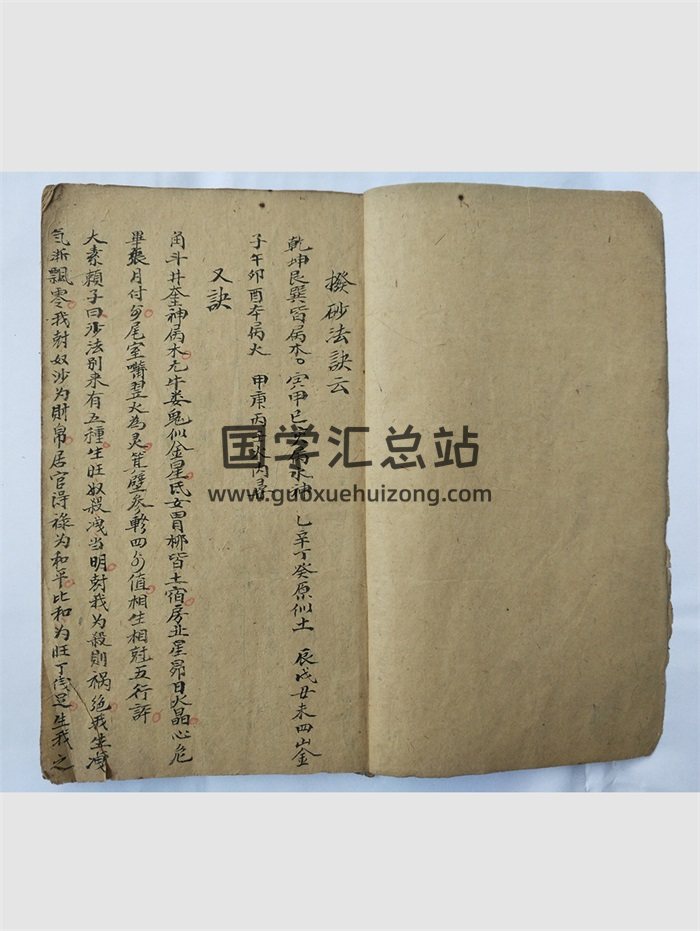 撥砂法訣云
乾坤艮巽皆属木。寅甲巳 属水神 乙辛丁癸原似土 辰戌丑未四山金
子午卯酉本属火 甲庚丙
又訣
角斗井奎神属木亢牛娄鬼似金星氐女胃柳皆土宿房虚星昴日火晶心危
畢張月付 尾室嘴翌火為灵箕壁參軫四 值相生相尅五行評
大素賴子曰沙法别来有五種生旺奴殺洩当明尅我为殺則禍絕我生洩
気渐飄零我尅奴沙为財帛居官得禄为和平比和为旺丁 是生我之
国学汇总站
www.guoxuehuizong.com